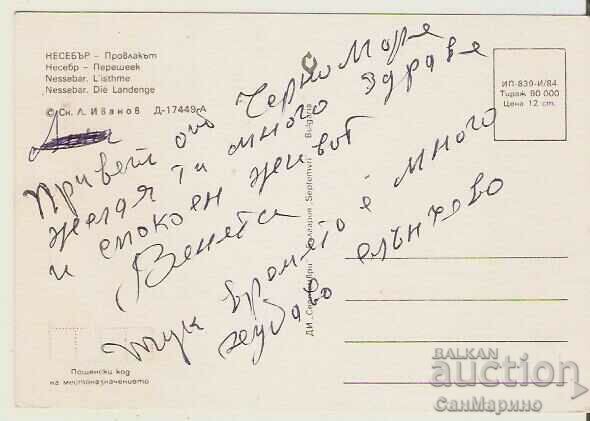 НЕСЕБЪР – Провлакът
Несебр – Перешеек
Nessebar. L'isthme
Nessebar. Die Landenge
© Сн. Л. Иванов Д-17449-А
Привет от Черно Море
желая ти много здраве
и спокоен живот
Венета
тук времето е много
хубаво слънчево
ДИ „Септември" България „Septemvri" Bulgaria
ИП-839-И/84
Тираж 90 000
Цена 12 ст.
Пощенски код
на местоназначението
BALKAN
auction
СанМарино